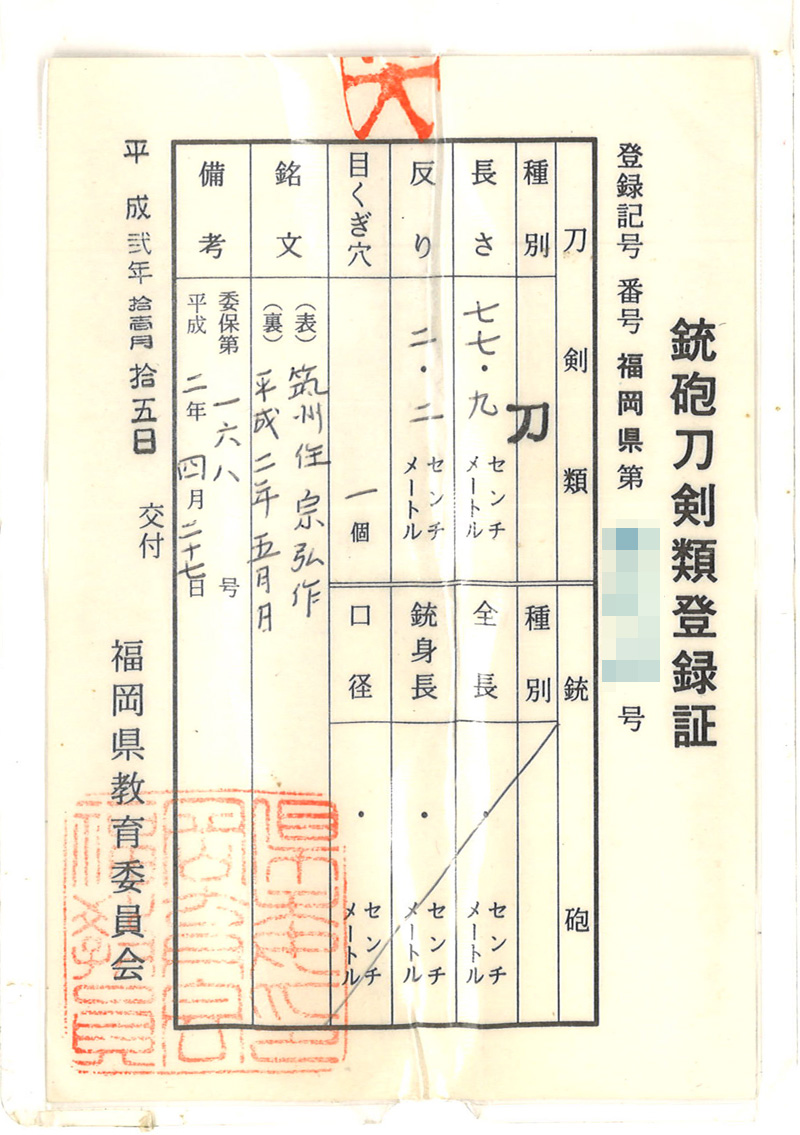 銃砲刀剣類登録証
登録記号 番号 福岡県第 号
刀剣類
種別 刀
長さ 七七・九 センチメートル
反り 二・二 センチメートル
目くぎ穴 一個
銘文 (表) 筑州住宗弘作
(裏) 平成二年五月日
備考 委保第 一六八 号
平成 二年 四月 二十七日
銃砲
種別
全長 ・ センチメートル
銃身長 ・ センチメートル
口径 ・ センチメートル
平成弐年拾壱月拾五日 交付
福岡県教育委員会